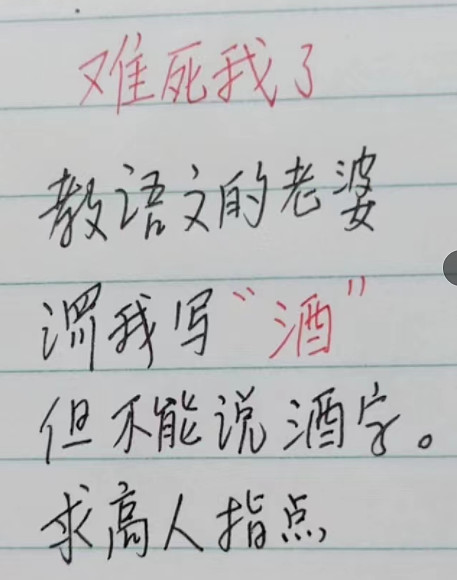 难死我了
教语文的老婆
让我写“酒”
但不能说酒字。
求高人指点